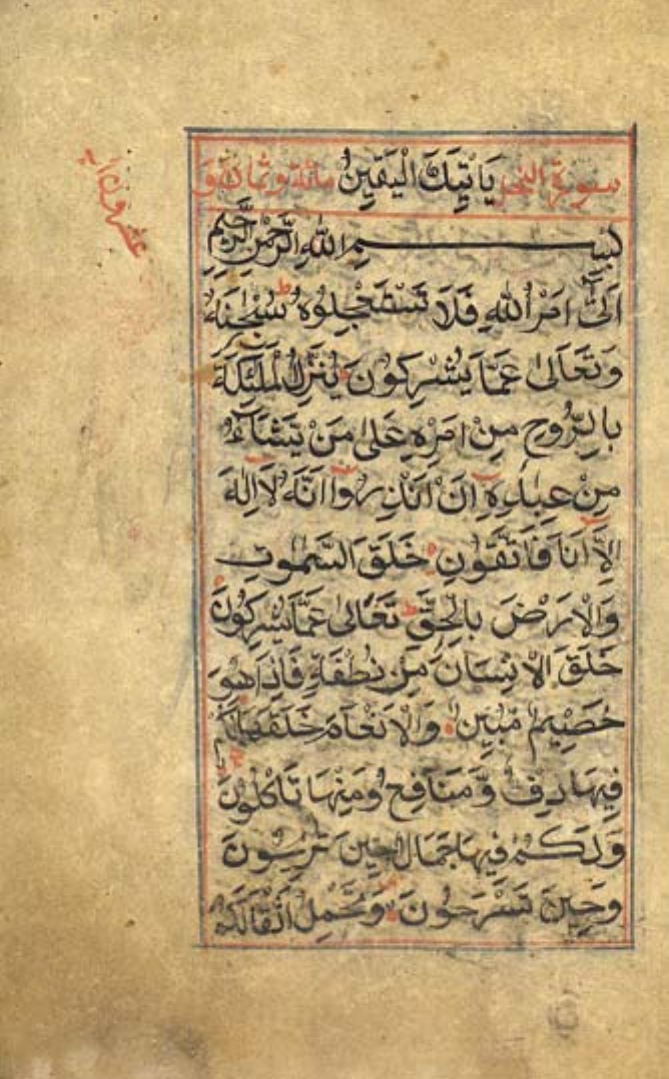 سورة النحل يَأْتِيَكَ الْيَقِينُ مائة وثمان
بِسْمِ اللهِ الرَّحْمٰنِ الرَّحِيمِ
اَتٰى اَمْرُ اللهِ فَلَا تَسْتَعْجِلُوهُ ط سُبْحٰنَهُ
وَتَعَالٰى عَمَّا يُشْرِكُونَ يُنَزِّلُ الْمَلٰئِكَةَ
بِالرُّوحِ مِنْ اَمْرِهِ عَلٰى مَنْ يَشَاءُ
مِنْ عِبَادِهِ اَنْ اَنْذِرُوا اَنَّهُ لَا اِلٰهَ
اِلَّا اَنَا فَاتَّقُونِ خَلَقَ السَّمٰوٰتِ
وَالْاَرْضَ بِالْحَقِّ ط تَعَالٰى عَمَّا يُشْرِكُونَ
خَلَقَ الْاِنْسَانَ مِنْ نُطْفَةٍ فَاِذَا هُوَ
خَصِيمٌ مُبِينٌ وَالْاَنْعَامَ خَلَقَهَا لَكُمْ
فِيهَا دِفْءٌ وَّمَنَافِعُ وَمِنْهَا تَاْكُلُونَ
وَلَكُمْ فِيهَا جَمَالٌ حِينَ تُرِيحُونَ
وَحِينَ تَسْرَحُونَ وَتَحْمِلُ اَثْقَالَكُمْ